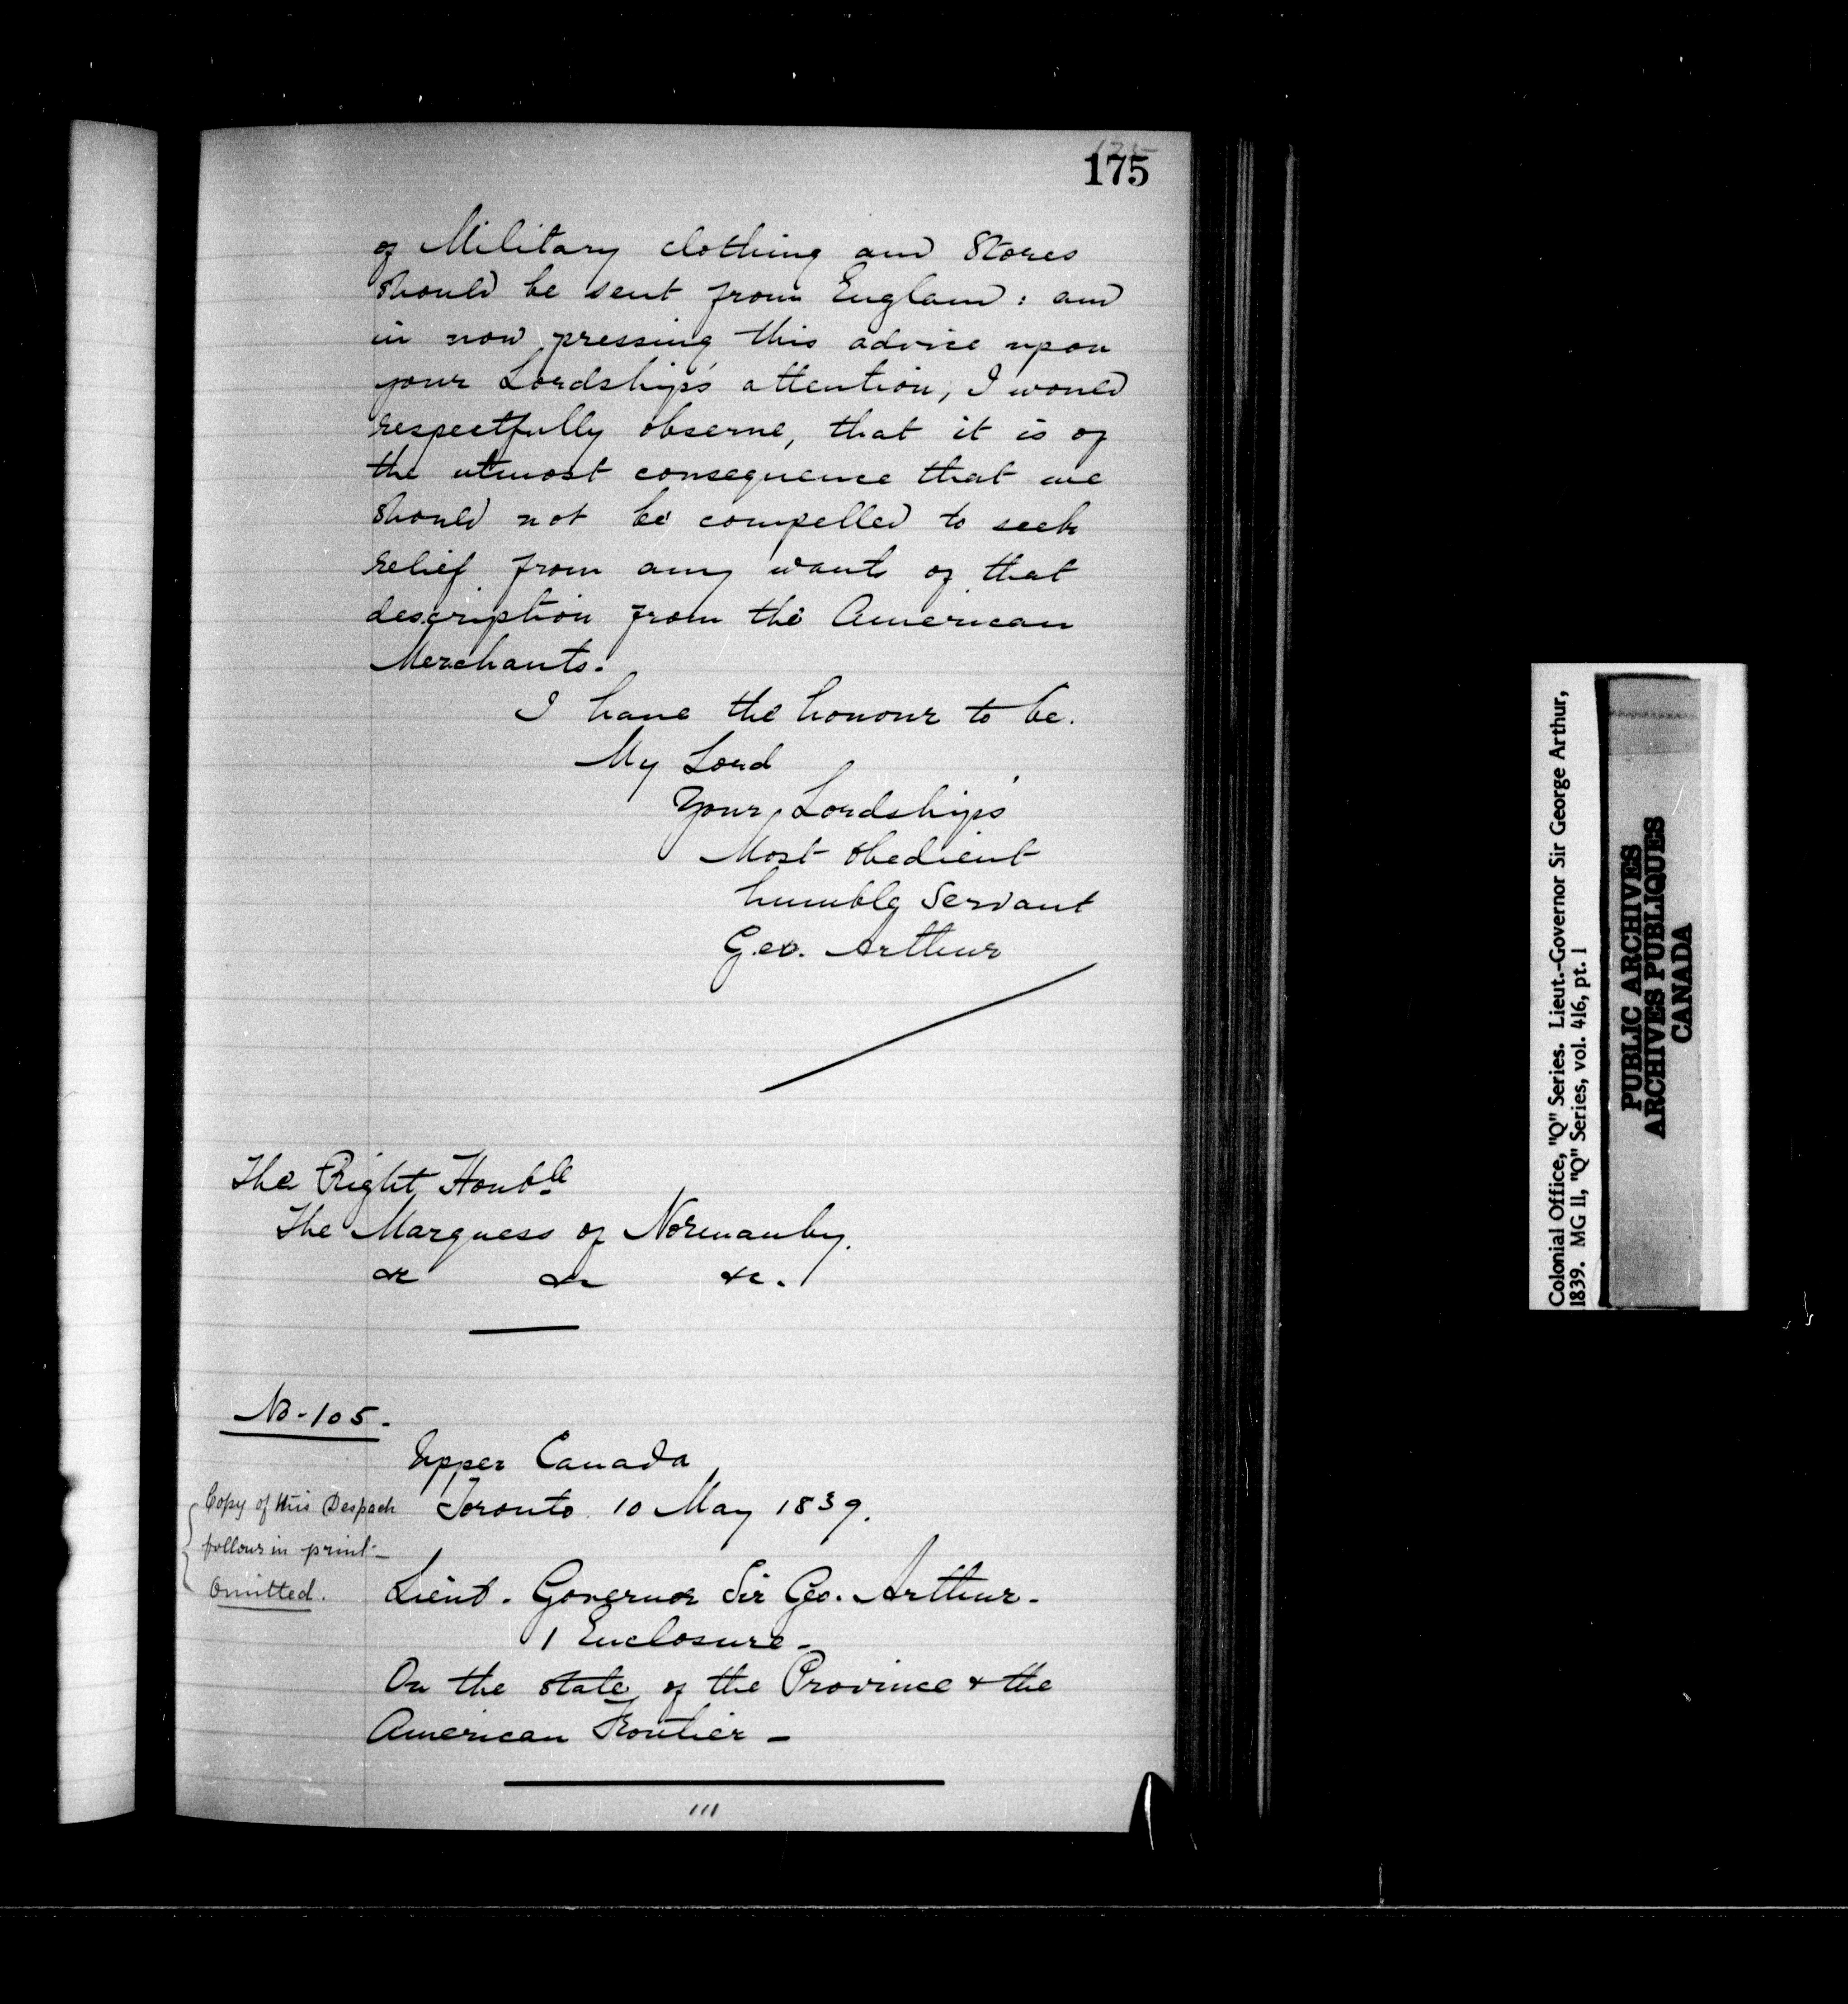 175
of Military clothing and Stores
should be sent from England: and
in now pressing this advice upon
your Lordship's attention, I would
respectfully observe, that it is of
the utmost consequence that we
should not be compelled to seek
relief from any wants of that
description from the American
Merchants.
I have the honour to be.
My Lord
Your Lordship's
Most obedient
humble Servant
Geo. Arthur
The Right Honble
The Marquess of Normanby.
&c &c &c.
No-105.
Upper Canada
Toronto 10 May 1839.
Copy of this Despach
follows in print-
omitted.
Lieut. Governor Sir Geo. Arthur-
1 Enclosure-
On the state of the Province & the
American Frontier-
111
Colonial Office, "Q" Series. Lieut.-Governor Sir George Arthur,
1839. MG 11, "Q" Series, vol. 416, pt. 1
PUBLIC ARCHIVES
ARCHIVES PUBLIQUES
CANADA